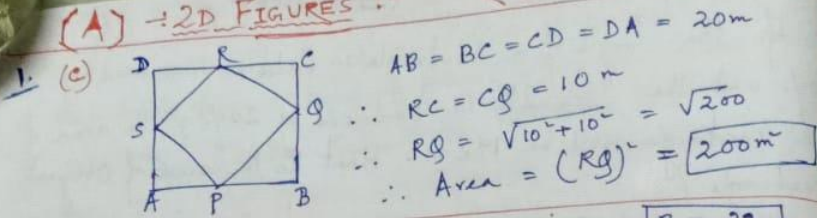 (A) -: 2D FIGURES.
1. (c)
D R C
S Q
A P B
AB = BC = CD = DA = 20m
∴ RC = CQ = 10 m
∴ RQ = √10²+10² = √200
∴ Area = (RQ)² = 200m²